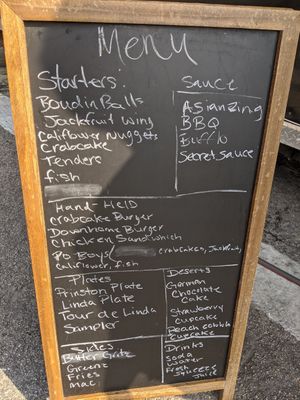 Menu
Starters:
Boudin Balls
Jackfruit Wing
Califlower Nuggets
Crabcake
Tenders
fish
Sauce
Asian Zing
BBQ
Bufflo
Secret Sauce
Hand-Held
Crabcake Burger
Downhome Burger
Chicken Sandwhich
Po Boys/ Crabcakes, Jackfruit,
Califlower, fish
Plates
Prinston Plate
Linda Plate
Tour de Linda
Sampler
Deserts
German
Chocolate
Cake
Strawberry
Cupcake
Peach cobbler
Cupcake
Sides
Butter Gritz
Greenz
Fries
Mac
Drinks
Soda
Water
Fresh Squeezed
Juice